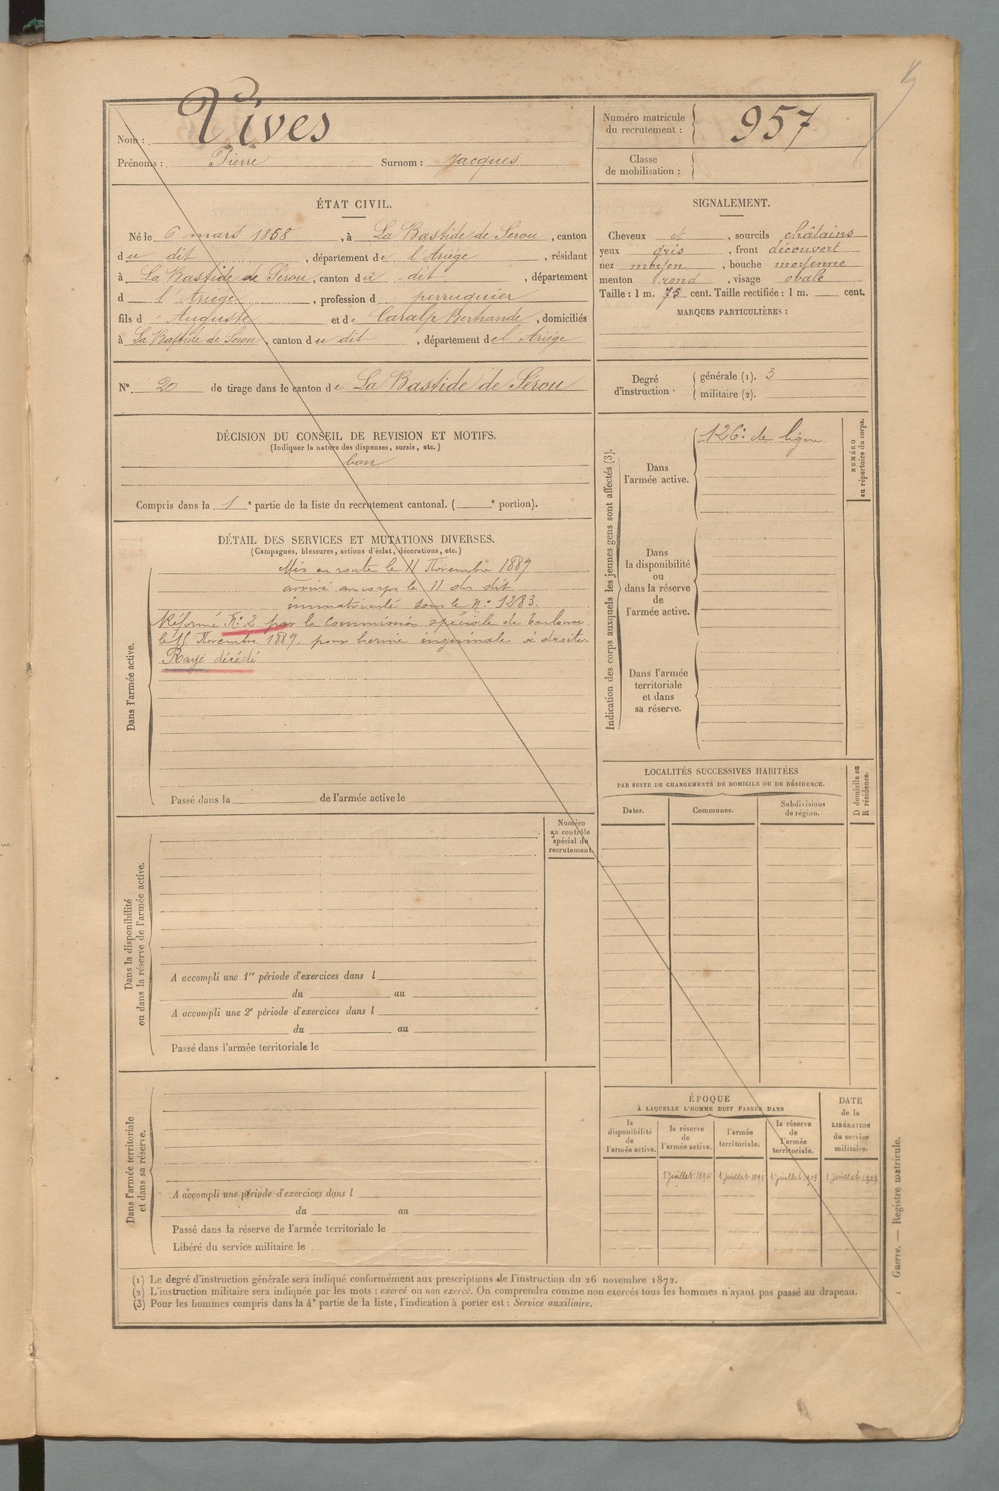 Nom : Vives
Prénoms : Pierre Surnom : Jacques
Numéro matricule du recrutement : 957
Classe de mobilisation :
ÉTAT CIVIL.
Né le 6 mars 1868, à La Bastide de Sérou, canton
du dit, département de l'Ariege, résidant
à La Bastide de Sérou, canton du dit, département
d l'Ariege, profession d perruquier
fils d' Auguste et de Caralp Bertrande, domiciliés
à La Bastide de Serou, canton du dit, département de l'Ariège
N° 20 de tirage dans le canton de La Bastide de Sérou
DÉCISION DU CONSEIL DE REVISION ET MOTIFS.
(Indiquer la nature des dispenses, sursis, etc.)
bon
Compris dans la 1e partie de la liste du recrutement cantonal. ( e portion).
DÉTAIL DES SERVICES ET MUTATIONS DIVERSES.
(Campagnes, blessures, actions d'éclat, décorations, etc.)
Dans l'armée active.
Mis en route le 11 Novembre 1889
arrivé au corps le 11 du dit
immatriculé sous le N° 1283.
Réformé N° 2 par la Commission spéciale de
le Novembre 1889. pour hernie inguinale à droite.
Rayé décédé
Passé dans la de l'armée active le
Dans la disponibilité
ou dans la réserve de l'armée active.
Numéro
au contrôle
spécial du
recrutement.
A accompli une 1re période d'exercices dans l
du au
A accompli une 2e période d'exercices dans l
du au
Passé dans l'armée territoriale le
Dans l'armée territoriale
et dans sa réserve.
A accompli une période d'exercices dans l
du au
Passé dans la réserve de l'armée territoriale le
Libéré du service militaire le
SIGNALEMENT.
Cheveux et, sourcils châtains
yeux gris, front découvert
nez moyen, bouche moyenne
menton rond, visage ovale
Taille : 1 m. 75 cent. Taille rectifiée : 1 m. cent.
MARQUES PARTICULIÈRES :
Degré d'instruction. générale (1). 3
militaire (2).
Indication des corps auxquels les jeunes gens sont affectés (3).
Dans
l'armée active.
126e de ligne
NUMÉRO
au répertoire du corps.
Dans
la disponibilité
ou
dans la réserve
de
l'armée active.
Dans l'armée
territoriale
et dans
sa réserve.
LOCALITÉS SUCCESSIVES HABITÉES
PAR SUITE DE CHANGEMENTS DE DOMICILE OU DE RÉSIDENCE.
Dates. Communes. Subdivisions de région.
D domicile ou
R résidence.
ÉPOQUE
À LAQUELLE L'HOMME DOIT PASSER DANS
la disponibilité de l'armée active.
la réserve de l'armée active.
l'armée territoriale.
la réserve de l'armée territoriale.
DATE de la LIBÉRATION du service militaire.
(1) Le degré d'instruction générale sera indiqué conformément aux prescriptions de l'instruction du 26 novembre 1872.
(2) L'instruction militaire sera indiquée par les mots : exercé ou non exercé. On comprendra comme non exercés tous les hommes n'ayant pas passé au drapeau.
(3) Pour les hommes compris dans la 4e partie de la liste, l'indication à porter est : Service auxiliaire.
Guerre. — Registre matricule.